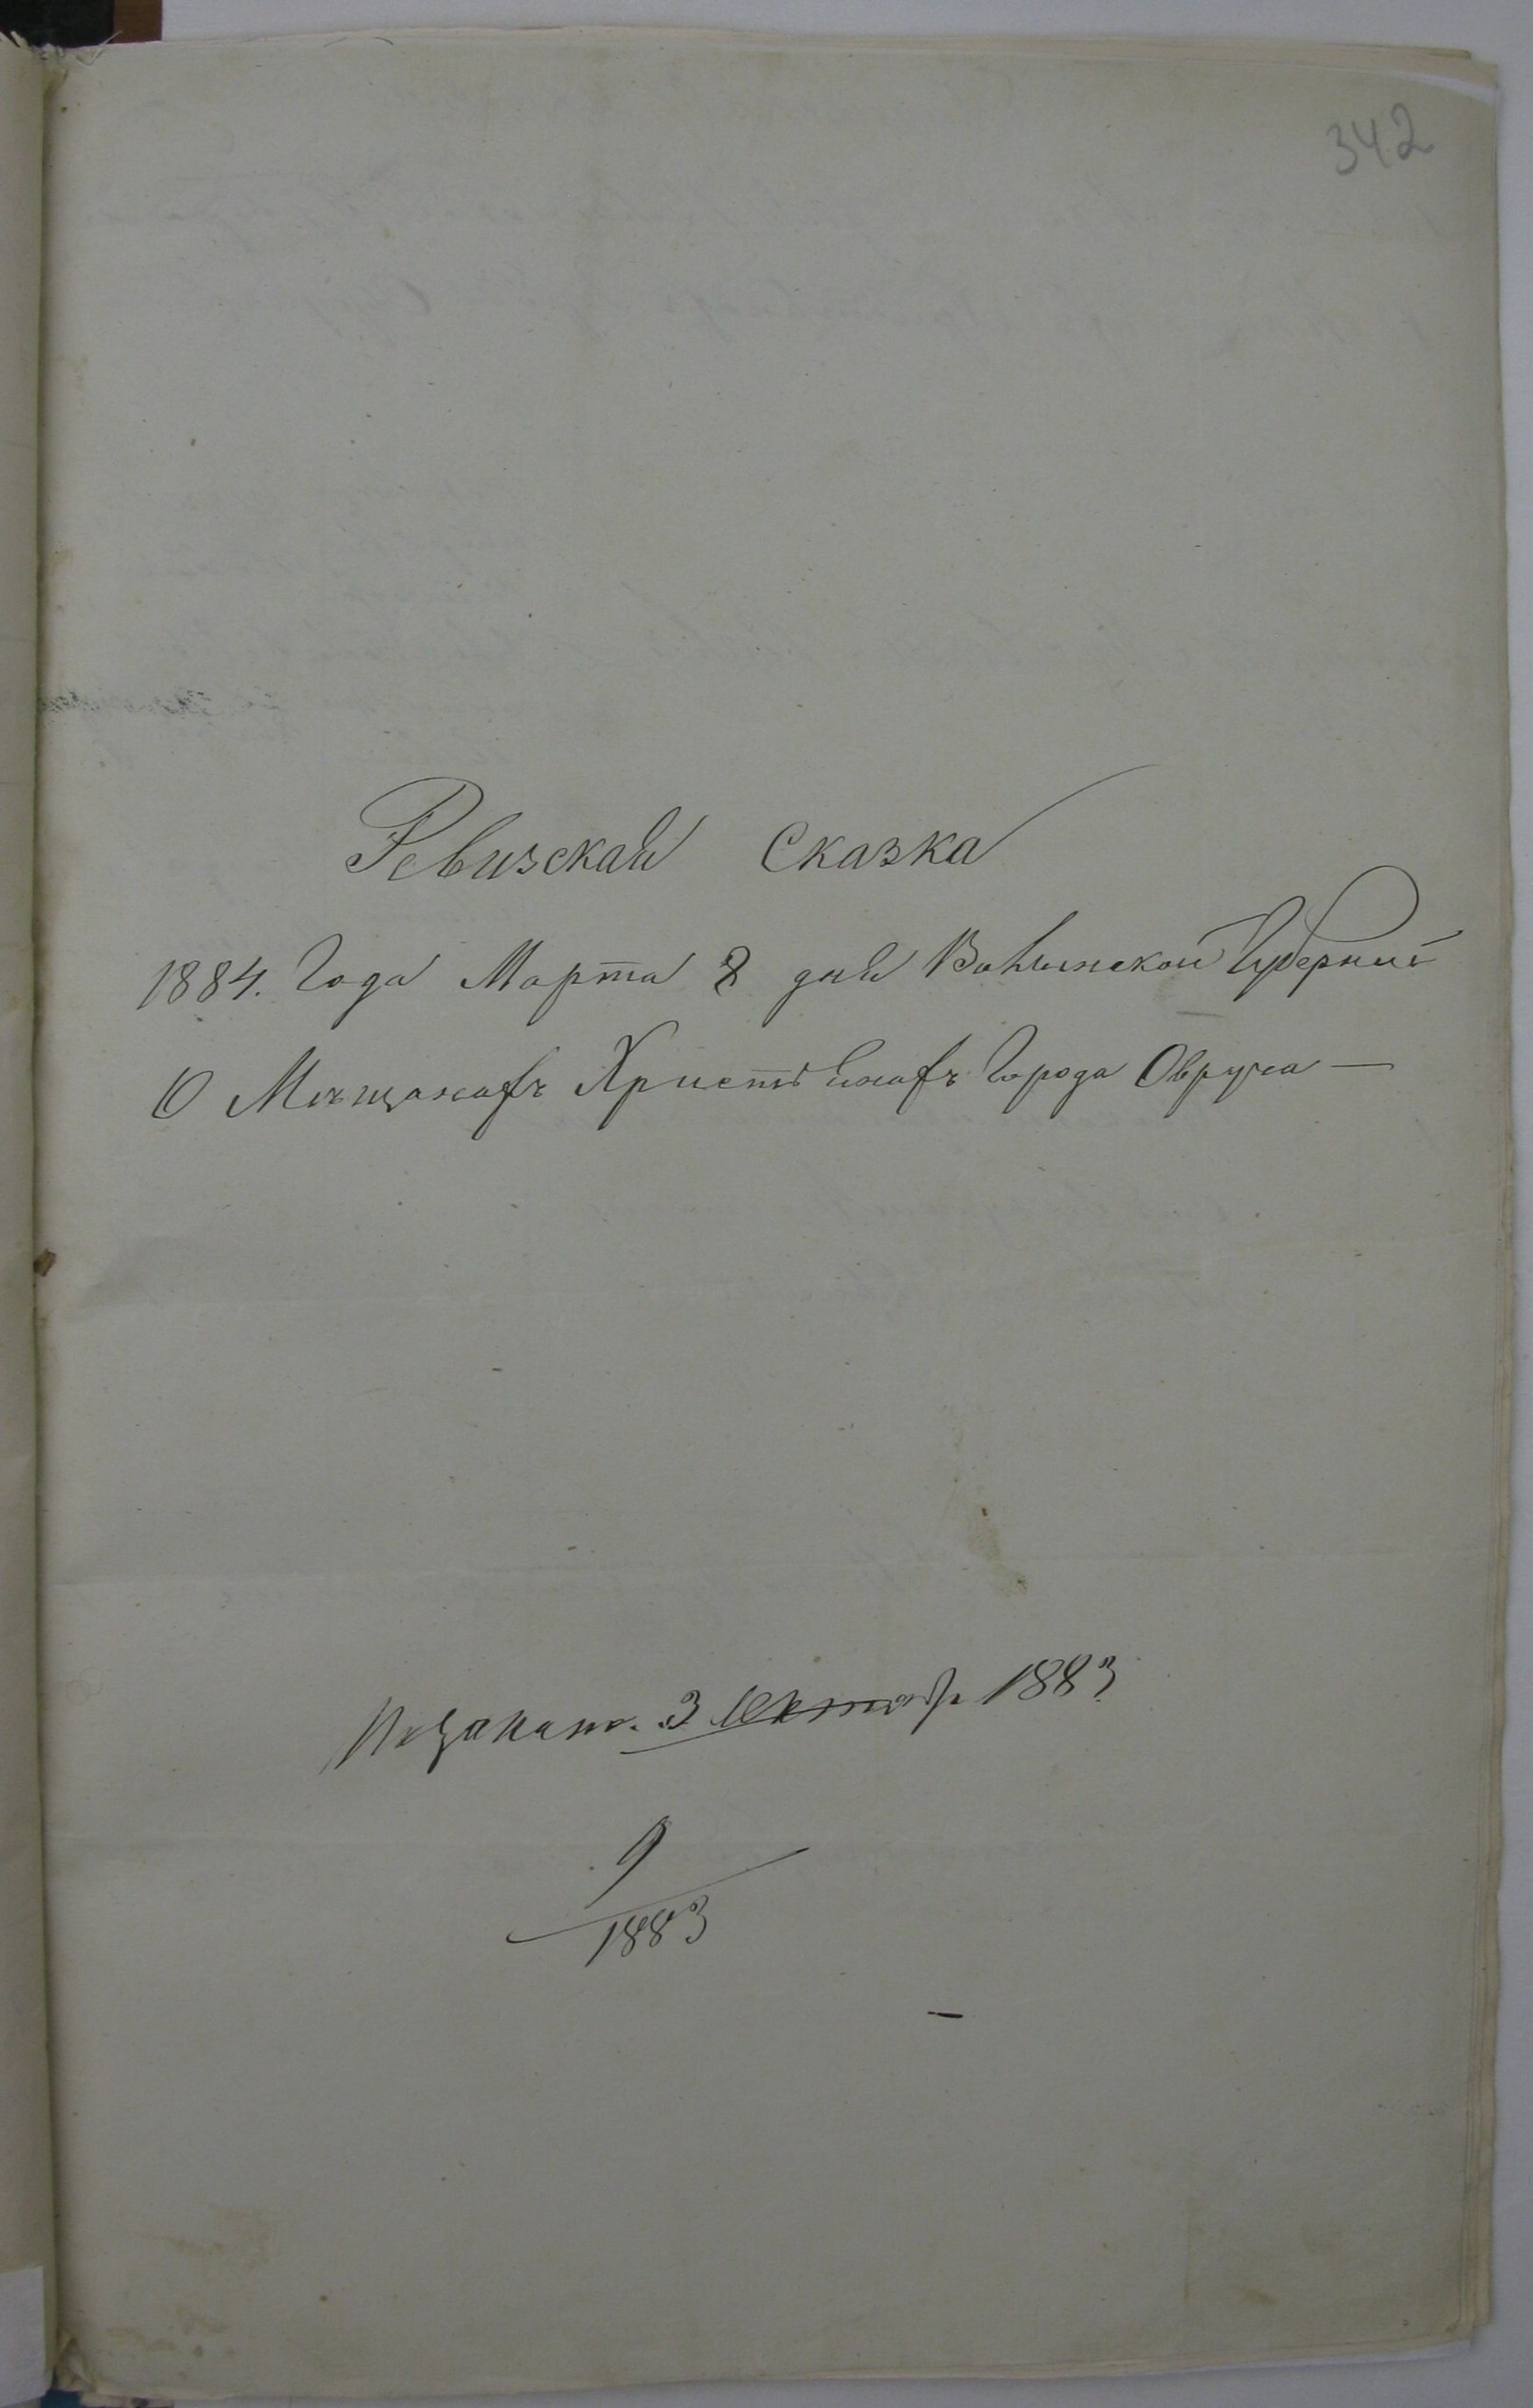 342
Ревизская Сказка
1884. Года Марта 8 дня Волынской Губерніи
О Мещанахъ Христіянахъ Города Овруча —
По Указ. 3 Октября 1883
9
1883